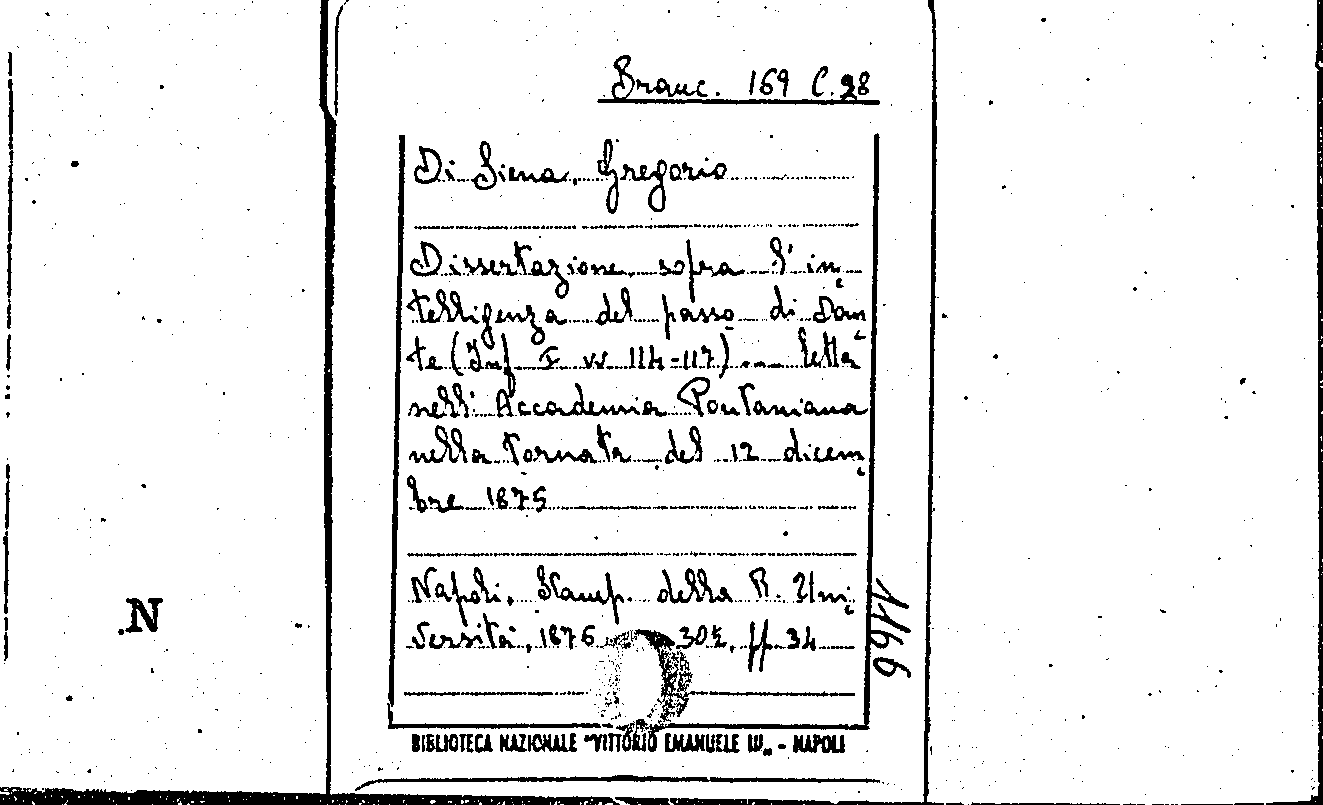 Branc. 169 C. 28
Di Siena, Gregorio
Dissertazione sopra l' in-
telligenza del passo di Dan-
te (Inf I vv 114-117) ... letta
nell' Accademia Pontaniana
nella tornata del 12 dicem-
bre 1875
Napoli, Stamp. della R. Uni-
versità, 1876 30½, pp. 34
1166
N
BIBLIOTECA NAZIONALE "VITTORIO EMANUELE III„ - NAPOLI